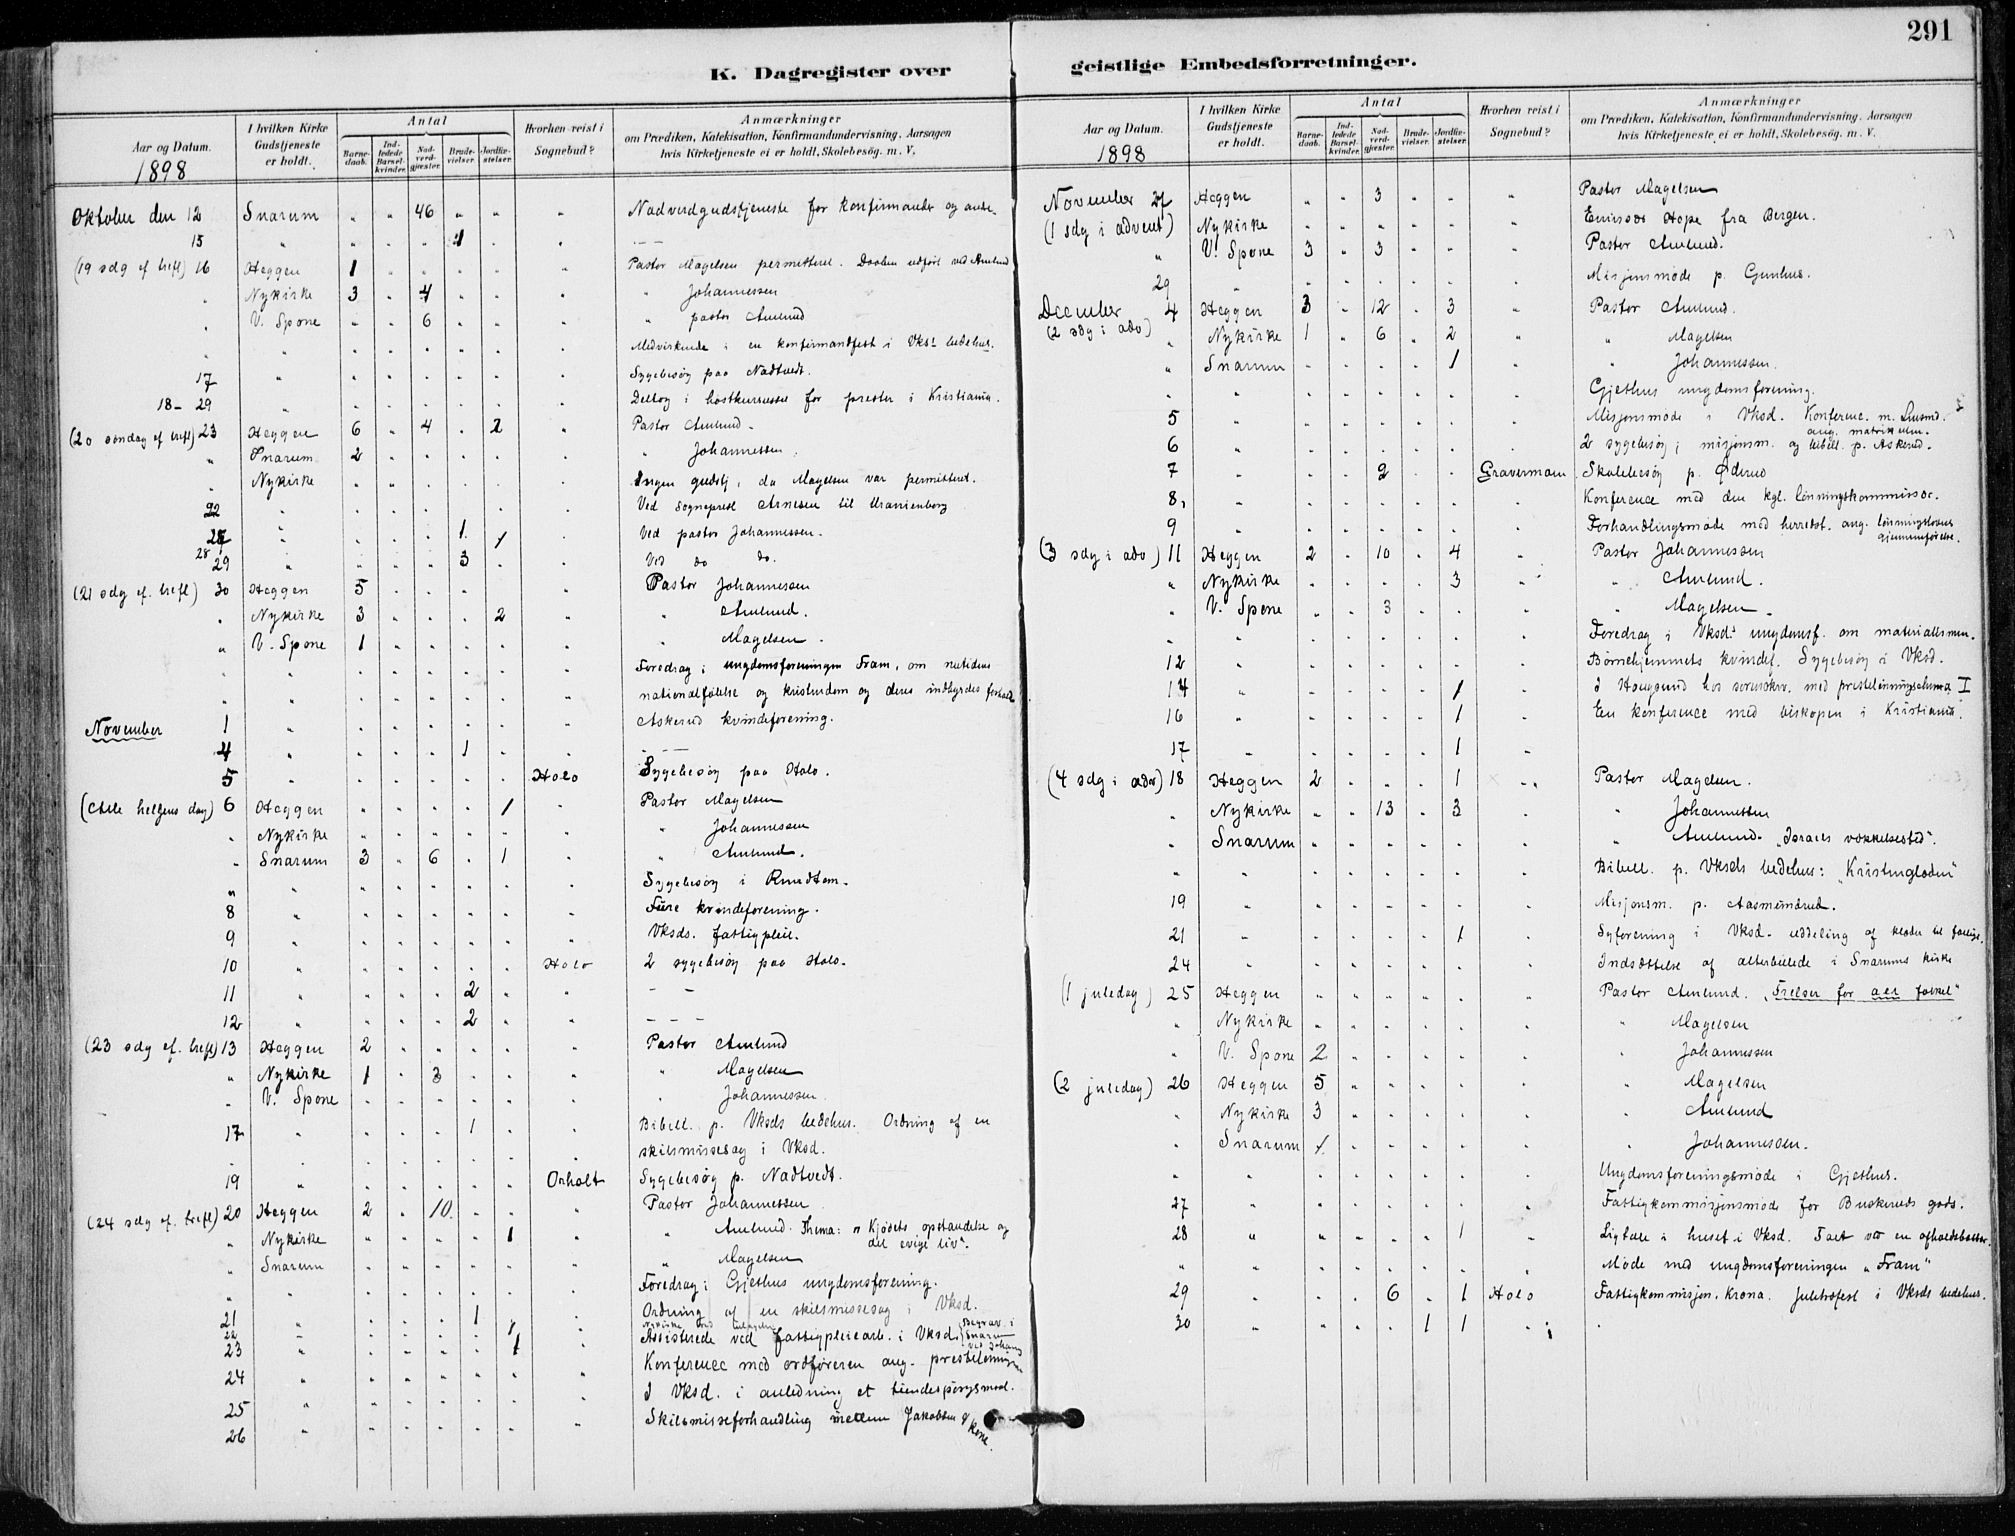 291
K. Dagregister over geistlige Embedsforretninger.
Aar og Datum.
1898
I hvilken Kirke Gudstjeneste er holdt.
Antal
Barnedaab.
Indledede Barselkvinder.
Nadverdgjæster.
Brudevielser.
Jordfæstelser.
Hvorhen reist i Sognebud?
Anmærkninger
om Prædiken, Katekisation, Konfirmandundervisning, Aarsagen
hvis Kirketjeneste ei er holdt, Skolebesög. m. V.
Oktober den 12 Snarum " " 46 " " " Nadverdgudstjeneste for konfirmander og andre
15 " " " " 1 " " — —
(19 sdg ef. trefl) 16 Heggen 1 " " " " " Pastor Magelsen permitteret. Daaben udført ved Amlund
" Nykirke 3 " 4 " " " " Johannessen
" V. Spone " " 6 " " " " pastor Amlund
" " " " " " " " Medvirkende i en konfirmandfest i Vks. bedehus.
17 " " " " " " " Sygebesøg paa Nadtvedt.
18-29 " " " " " " " Deltog i høstkurset for prester i Kristiania.
(20 søndag ef trefl) 23 Heggen 6 " 4 " 2 " Pastor Amlund.
" Snarum 2 " " " " " " Johannessen
" Nykirke " " " " " " Ingen gudstj, da Magelsen var permitteret.
22 " " " " " " " Ved sogneprest Arnesen til Uranienborg
27 " " " " 1 1 " Ved pastor Johannessen.
28
29 " " " " 3 " " Ved do do.
(21 sdg ef. trefl) 30 Heggen 5 " " " " " Pastor Johannessen
" Nykirke 3 " " " 2 " " Amlund.
" V. Spone 1 " " " " " " Magelsen.
" " " " " " " " Foredrag i ungdomsforeningen Fram, om nutidens
" " " " " " " " nationalfølelse og kristendom og deres indbyrdes forhold
November 1 " " " " " " " Askerud kvindeforening.
4 " " " " 1 " " — —
5 " " " " " " Holo Sygebesøg paa Holo.
(Alle helgens dag) 6 Heggen " " " " 1 " Pastor Magelsen
" Nykirke " " " " " " " Johannessen
" Snarum 3 " 6 " 1 " " Amlund.
" " " " " " " " Sygebesøg i
8 " " " " " " " Fure kvindeforening.
9 " " " " " " " Vksds. fattigpleie.
10 " " " " " " Holo 2 sygebesøg paa Holo.
11 " " " " 2 " " — —
12 " " " " 2 " " — — —
(23 sdg ef. trefl) 13 Heggen 2 " " " " " Pastor Amlund
" Nykirke 1 " 3 " " " " Magelsen
" V. Spone " " " " " " " Johannessen.
17 " " " " 1 " " Bibell. p. Vksds bedehus. Ordning af en
" " " " " " " " skilsmissesag i Vksd.
19 " " " " " " Orholt Sygebesøg p. Nadtvedt.
(24 sdg ef. trefl) 20 Heggen 2 " 10 " " " Pastor Johannessen
" Nykirke " " " " 1 " " Amlund. Thema: "Kjødets opstandelse og det evige liv".
" Snarum " " " " " " " Magelsen
" " " " " " " " Foredrag i Gjethus ungdomsforening.
21 " " " " 1 " " Ordning af en skilsmissesag i Vksd.
22
23 " " " " " 1 " Assisterede ved fattigpleiearb. i Vksd. Begrav. i Snarum ved Johans
24 " " " " " " " Konference med ordføreren ang. presteløningen
25 " " " " " " " I Vksd. i anledning et tiendespørgsmaal.
26 " " " " " " " Skilsmisseforhandling mellem Jakobsen & kone.
Aar og Datum.
1898
I hvilken Kirke Gudstjeneste er holdt.
Antal
Barnedaab.
Indledede Barselkvinder.
Nadverdgjæster.
Brudevielser.
Jordfæstelser.
Hvorhen reist i Sognebud?
Anmærkninger
om Prædiken, Katekisation, Konfirmandundervisning, Aarsagen
hvis Kirketjeneste ei er holdt, Skolebesög. m. V.
November 27 Heggen " " 3 " " " Pastor Magelsen
(1 sdg i advent) Nykirke " " " " " " Emissær Hope fra Bergen.
" V. Spone 3 " 3 " " " Pastor Amlund.
29 " " " " " " " Misjonsmøde p. Gunhus.
December 4 Heggen 3 " 12 " 3 " Pastor Amlund.
(2 sdg i adv) " Nykirke 1 " 6 " 2 " " Magelsen
" Snarum " " " " 1 " " Johannessen.
" " " " " " " " Gjethus ungdomsforening.
5 " " " " " " " Misjonsmøde i Vksd. Konferenc. m. Lensmd. ang. matrikulen.
6 " " " " " " " 2 sygebesøg; misjonsm. og bibell. p. Askerud.
7 " " " 2 " " Gravermoen Skolebesøg p. Øderud
8, " " " " " " " Konference med den kgl. lønningskommissær.
9 " " " " " " " Forhandlingsmøde med herredst. ang. lønningslovens gjennemførelse.
(3 sdg i adv) 11 Heggen 2 " 10 " 4 " Pastor Johannessen
" Nykirke " " " " 3 " " Amlund.
" V. Spone " " 3 " " " " Magelsen.
" " " " " " " " Foredrag i Vksds ungdomsf. om materialismen.
12 " " " " " " " Børnehjemmets kvindef. Sygebesøg i Vksd.
14 " " " " " 1 " I Haugsund hos sorenskriv. med presteløningsskema I
16 " " " " " 1 " En konference med biskopen i Kristiania.
17 " " " " " 1 "
(4 sdg i adv) 18 Heggen 2 " " " 1 " Pastor Magelsen.
" Nykirke " " 13 " 3 " " Johannessen
" Snarum " " " " " " " Amlund. "Israels vækkelsestid".
" " " " " " " " Bibell. p. Vksds bedehus: "Kristenglæden"
19 " " " " " " " Misjonsm. p. Aasmundrud.
21 " " " " " 1 " Syforening i Vksd. uddeling af klæder til fattige.
24 " " " " " " " Indsættelse af alterbillede i Snarums kirke
(1 juledag) 25 Heggen " " " " " " Pastor Amlund. "Frelser for alt folket"
" Nykirke " " " " " " " Magelsen
" V. Spone 2 " " " " " " Johannessen
(2 juledag) 26 Heggen 5 " " " " " " Magelsen
" Nykirke 3 " " " " " " Amlund
" Snarum 1 " " " " " " Johannessen.
" " " " " " " " Ungdomsforeningsmøde i Gjethus.
27 " " " " " " " Fattigkommisjonsmøde for Buskeruds gods.
28 " " " " " 1 " Ligtale i huset i Vksd.
" " " " " " " " Møde med ungdomsforeningen "Fram"
29 " " " 6 " 1 Holo Fattigkommisjon. Krona. Juletræfest i Vksds bedehus.
30 " " " " 1 1 " "